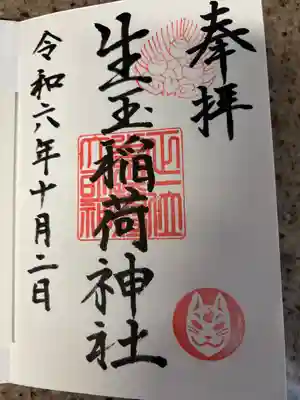 奉拝
生玉稲荷神社
令和六年十月二日